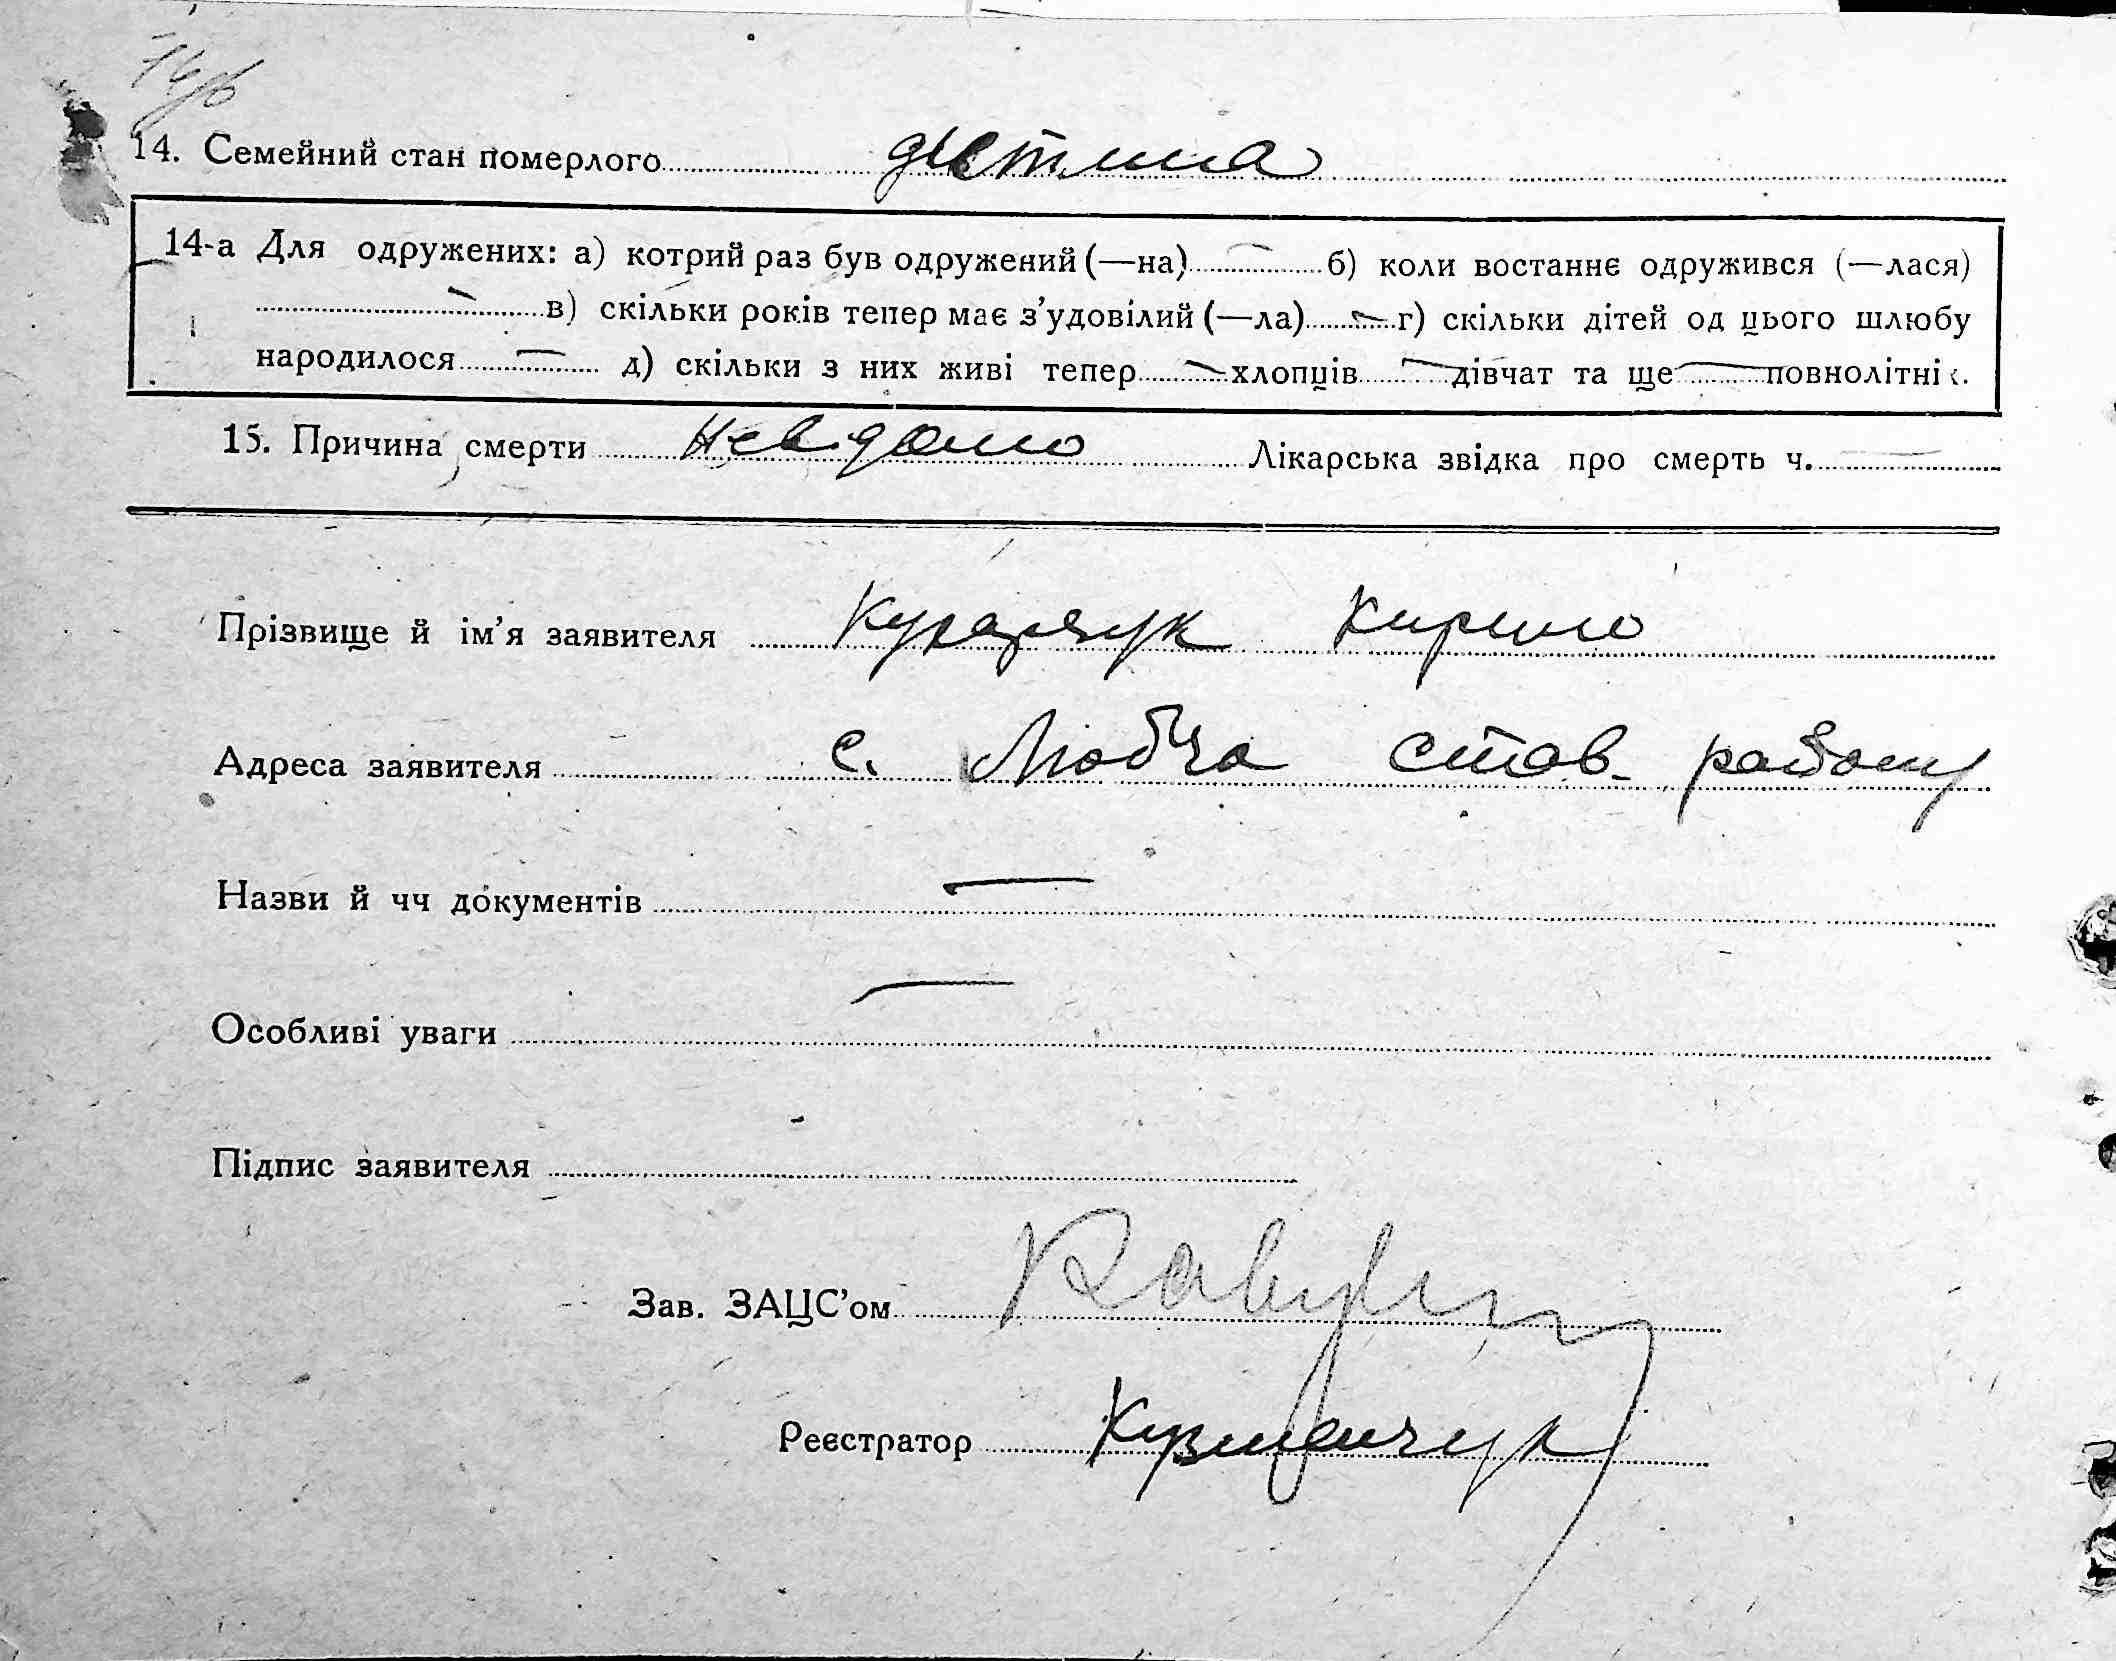 14. Семейний стан померлого дитина
14-а Для одружених: а) котрий раз був одружений (—на) б) коли востаннє одружився (—лася)
в) скільки років тепер має з’удовілий (—ла) г) скільки дітей од цього шлюбу
народилося д) скільки з них живі тепер хлопців дівчат та ще повнолітніх.
15. Причина смерти невідомо Лікарська звідка про смерть ч.
Прізвище й ім’я заявителя Кирило
Адреса заявителя с. Любча став. району
Назви й чч документів
Особливі уваги
Підпис заявителя
Зав. ЗАЦС’ом
Реєстратор